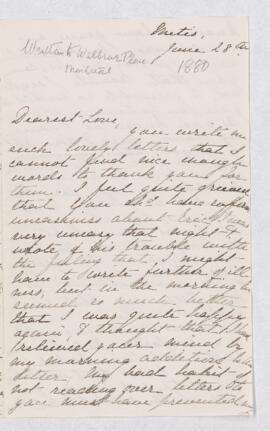 Metis,
June 28th
1880
Montreal
Dearest Love,
you write me
such lovely letters that I
cannot find nice enough
words to thank you for
them. I feel quite grieved
that you shd. have
uneasiness about Eric. I was
very uneasy that night &
wrote of his trouble with
the feeling that, I might
have to write further of ill
ness, but in the morning he
seemed so much better
that I was quite happy
again, & thought that I had
relieved your mind by
my morning additions to
letter. My bad habit of
not reading over letters to
you must have prevented